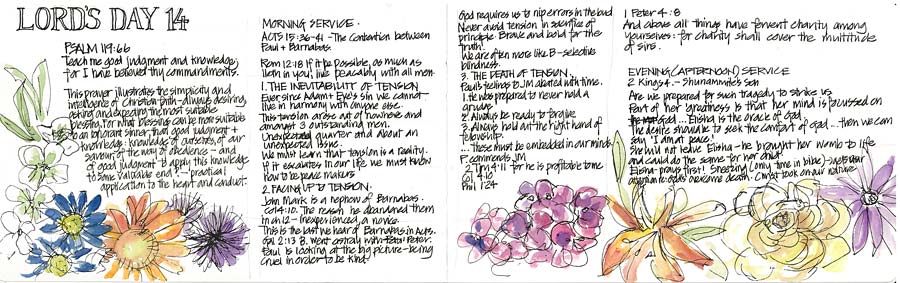 LORD'S DAY 14
PSALM 119:66
Teach me good judgment and knowledge,
for I have believed thy commandments.
This prayer illustrates the simplicity and
intelligence of Christian faith - always desiring,
asking and expecting the most suitable
blessing. For what blessing can be more suitable
to an ignorant sinner, than good judgment +
knowledge: knowledge of ourselves, of our
saviour, of the way of obedience - and
good judgment to apply this knowledge
to some valuable end? - practical
application to the heart and conduct.
MORNING SERVICE.
ACTS 15:36-41 - The Contention between
Paul + Barnabas.
Rom 12:18 If it be possible, as much as
lieth in you, live peacably with all men.
1. THE INEVITABILITY OF TENSION
Ever since Adam + Eve's sin we cannot
live in harmony with anyone else.
This tension arose out of nowhere and
amongst 3 outstanding men.
Unexpected quarter and about an
unexpected issue.
We must learn that tension is a reality.
If it escalates in our life we must know
how to be peace makers
2. FACING UP TO TENSION.
John Mark is a nephew of Barnabas.
Col 4:10. The reason he abandoned them
in ch 12 - Inexperienced, a novice.
This is the last we hear of Barnabas in Acts.
Gal 2:13 B. went astray with Peter.
Paul is looking at the big picture - being
cruel in order to be kind.
God requires us to nip errors in the bud
Never avoid tension in sacrifice of
principle. Brave and bold for the
truth!
We are often more like B - selective
blindness.
3. THE DEATH OF TENSION.
Paul's feelings to JM abated with time.
1. He was prepared to never hold a
grudge
2. Always be ready to forgive
3. Always hold out the right hand of
fellowship.
... These must be embedded in our minds
P. commends JM
2 Tim 4:11 for he is profitable to me
Col 4:10
Phil 1:24
1 Peter 4:8
And above all things have fervent charity among
yourselves: for charity shall cover the multitude
of sins.
EVENING (AFTERNOON) SERVICE
2 Kings 4 - Shunammite's Son
Are we prepared for such tragedy to strike us
Part of her greatness is that her mind is focussed on
God ... Elisha is the oracle of God
The desire should be to seek the comfort of God ... then we can
say "I am at peace"
She will not leave Elisha - he brought her womb to life
and could do the same for her child
Elisha prays first! Sneezing (only time in bible)
overcome death. Christ took on our nature